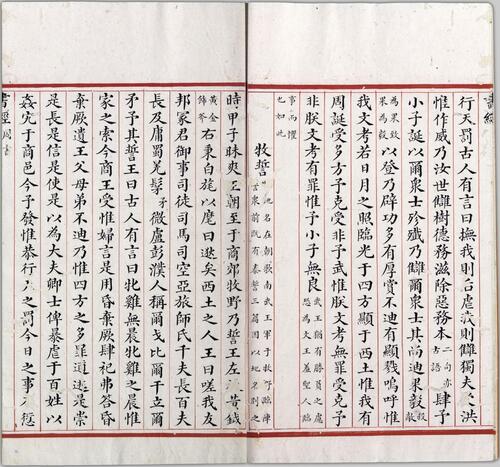 書經
行天罰古人有言曰撫我則后虐我則讎獨夫受洪
惟作威乃汝世讎樹德務滋除惡務本二句亦古語肆予
小子誕以爾衆士殄殲乃讎爾衆士其尚迪果毅殺敵
為果致果為毅以登乃辟功多有厚賞不迪有顯戮嗚呼惟
我文考若日月之照臨光于四方顯于西土惟我有
周誕受多方予克受非予武惟朕文考無罪受克予
非朕文考有罪惟予小子無良武王猶有勝負之慮恐為文王羞聖人臨
事而懼也如此
牧誓地名在朝歌南武王軍于牧野臨陣誓衆前既有泰誓三篇因以地名別之
時甲子昧爽王朝至于商郊牧野乃誓王左杖黃鉞
黃金飾斧右秉白旄以麾曰逖矣西土之人王曰嗟我友
邦冢君御事司徒司馬司空亞旅師氏千夫長百夫
長及庸蜀羌髳微盧彭濮人稱爾戈比爾干立爾
矛予其誓王曰古人有言曰牝雞無晨牝雞之晨惟
家之索今商王受惟婦言是用昏棄厥肆祀弗答昏
棄厥遺王父母弟不迪乃惟四方之多罪逋逃是崇
是長是信是使是以為大夫卿士俾暴虐于百姓以
姦宄于商邑今予發惟恭行天之罰今日之事不愆
書經周書